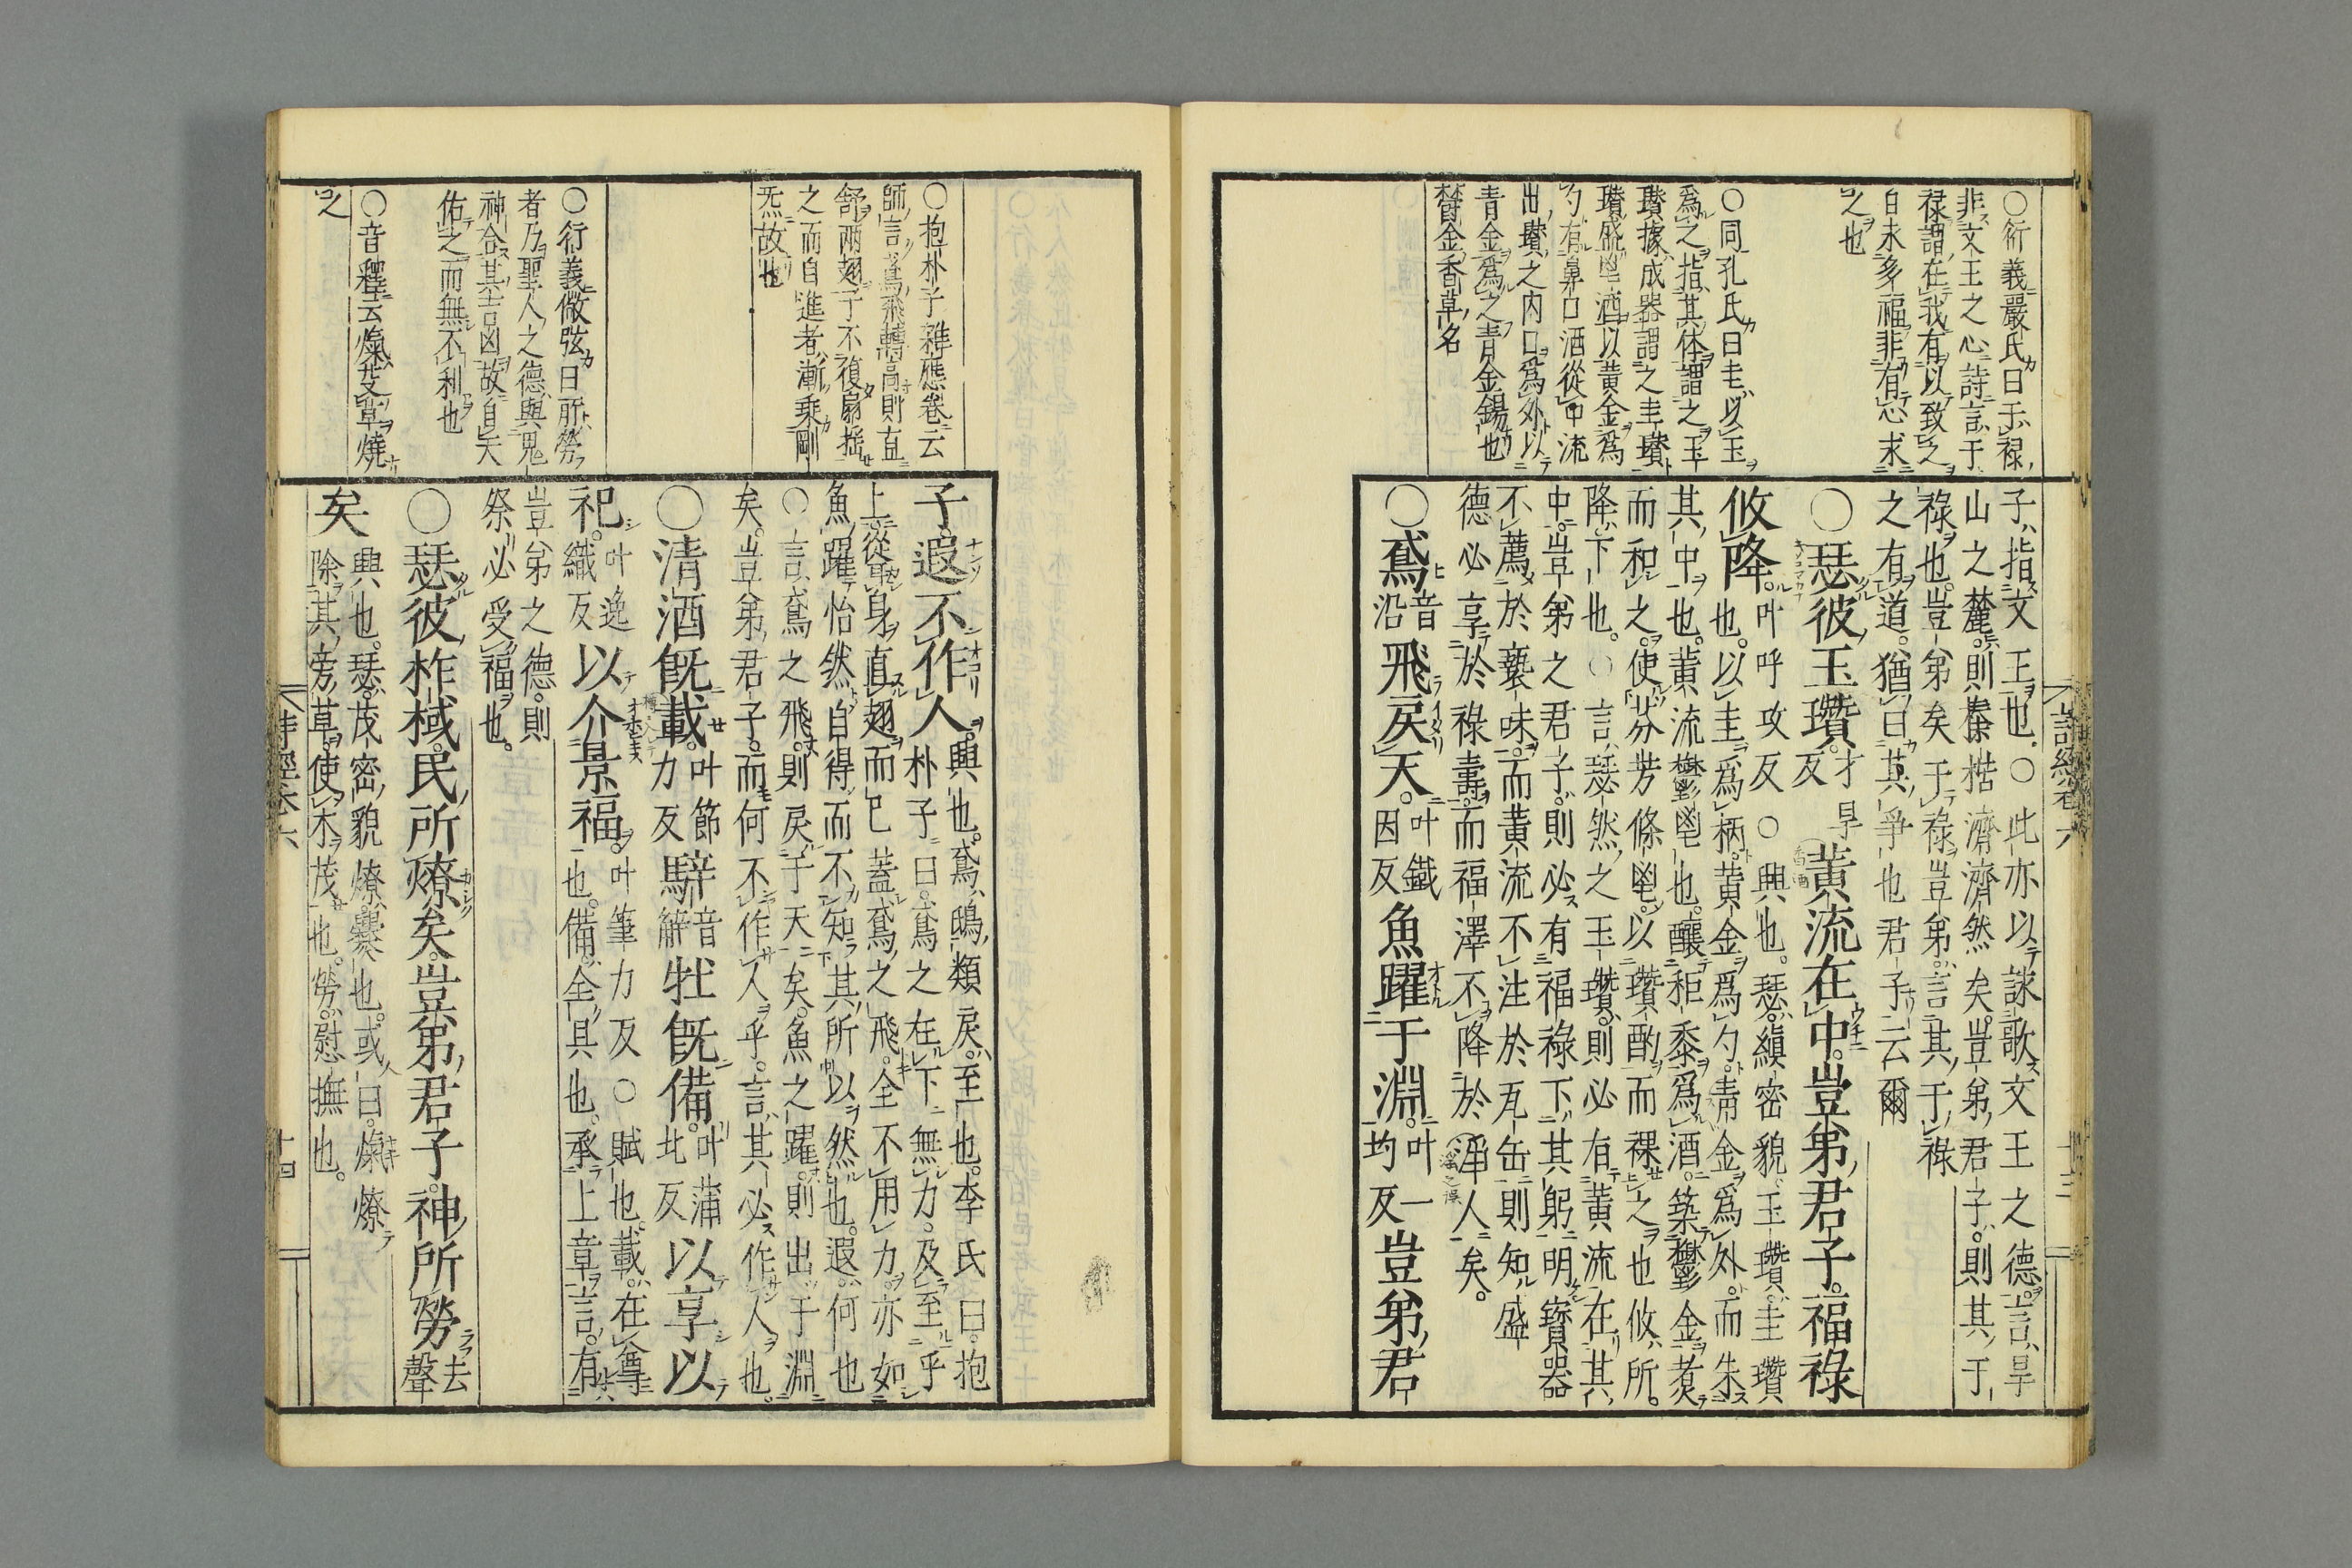 ○衍義嚴氏曰于祿
非文王之心詩言于
祿謂在我有以致之
自求多福非有心求
之也
○同孔氏曰圭以玉
爲之指其体謂之玉
瓚據成器謂之圭瓚
瓚盛鬯酒以黄金爲
勺有鼻口酒從中流
出瓚之内口爲外以
青金爲之青金錫也
欝金香草名
子指文王也○此亦以詠歌文王之德言旱
山之麓則榛楛濟濟然矣豈弟君子則其于
祿也豈弟矣于祿豈弟言其于祿
之有道猶曰其爭也君子云爾
○瑟彼玉瓚才旱反黄流在中豈弟君子福祿
攸降叶呼攻反○興也瑟縝密貌玉瓚圭瓚
也以圭爲柄黄金爲勺青金爲外而朱
其中也黄流欝鬯也釀秬黍爲酒築欝金煑
而和之使芬芳條鬯以瓚酌而祼之也攸所
降下也○言瑟然之玉瓚則必有黄流在其
中豈弟之君子則必有福祿下其躬明寳器
不薦於褻味而黄流不注於瓦缶則知盛
德必享於祿壽而福澤不降於滛人矣
○鳶音沿飛戾天叶鐵因反魚躍于淵叶一均反豈弟君
詩經卷六
十三
○抱朴子雜應卷云
師言鳶飛轉高則直
舒兩翅了不復扇搖
之而自進者漸乘剛
炁故也
○衍義傲弦曰所勞
者乃聖人之德與鬼
神合其吉凶故自天
佑之而無不利也
○音釋云爎芟草燒
之
子遐不作人興也鳶鴟類戾至也李氏曰抱
朴子曰鳶之在下無力及至乎
上從身直翅而已蓋鳶之飛全不用力亦如
魚躍怡然自得而不知其所以然也遐何也
○言鳶之飛則戾于天矣魚之躍則出于淵
矣豈弟君子而何不作人乎言其必作人也
○清酒旣載叶節力反騂音觪牡旣備叶蒲北反以享以
祀叶逸織反以介景福叶筆力反○賦也載在尊
也備全具也承上章言有
豈弟之德則
祭必受福也
○瑟彼柞棫民所燎矣豈弟君子神所勞去聲
矣興也瑟茂密貌燎爨也或曰爎燎
除其旁草使木茂也勞慰撫也
詩經卷六
十四